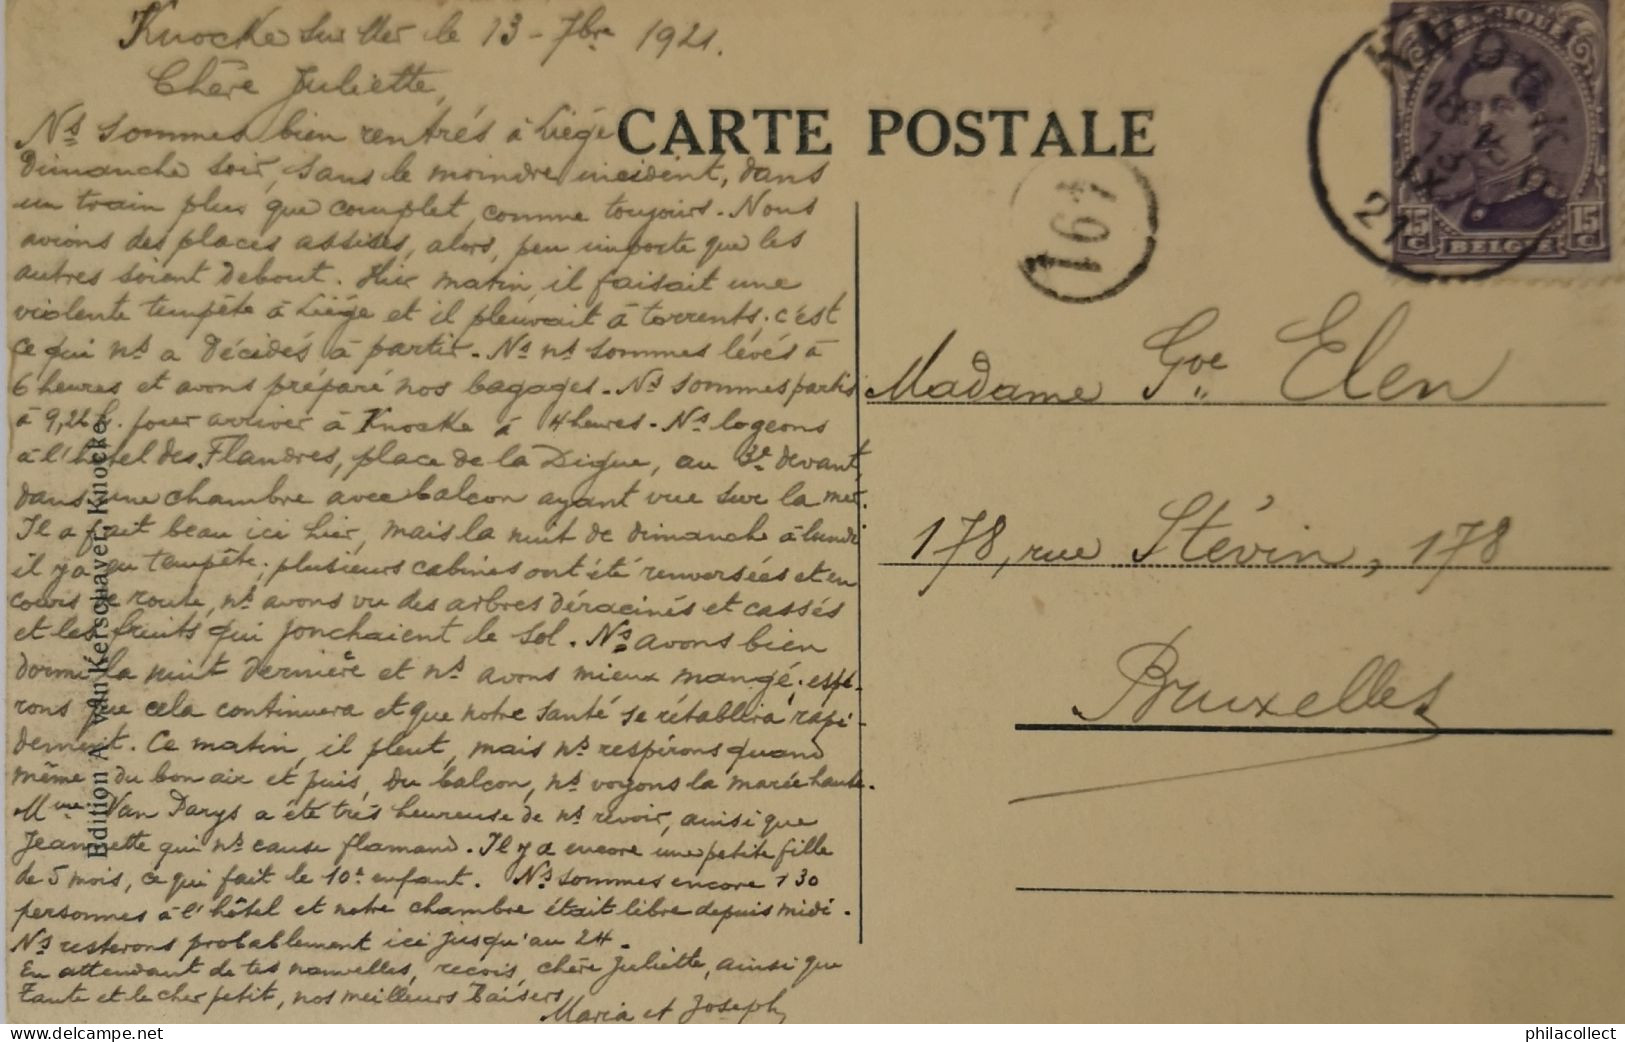 Knocke sur Mer le 13 - 7bre 1921.
Chère Juliette,
Ns sommes bien rentrés à Liége
Dimanche soir, sans le moindre incident, dans
un train plus que complet, comme toujours. Nous
avions des places assises, alors, peu importe que les
autres soient debout. Hier matin, il faisait une
violente tempête à Liége et il pleuvait à torrents, c'est
ce qui ns a décidés à partir. Ns ns sommes lévés à
6 heures et avons préparé nos bagages. Ns sommes partis
à 9,22 h. pour arriver à Knocke à 4 heures. Ns logeons
à l'hôtel des Flandres, place de la Digue, au 3e devant,
dans une chambre avec balcon ayant vue sur la mer.
Il a fait beau ici hier, mais la nuit de dimanche à lundi
il y a eu tempête; plusieurs cabines ont été renversées et en
cours de route, ns avons vu des arbres déracinés et cassés
et les fruits qui jonchaient le sol. Ns avons bien
dormi la nuit dernière et ns avons mieux mangé; espé-
rons que cela continuera et que notre santé se rétablira rapi-
dement. Ce matin, il pleut, mais ns respirons quand
même du bon air et puis, du balcon, ns voyons la marée haute.
Mme Van Parys a été très heureuse de ns revoir, ainsi que
Jeannette qui ns cause flamand. Il y a encore une petite fille
de 5 mois, ce qui fait le 10e enfant. Ns sommes encore 130
personnes à l'hôtel et notre chambre était libre depuis midi.
Ns resterons probablement ici jusqu'au 24.
En attendant de tes nouvelles, reçois, chère Juliette, ainsi que
Tante et le cher petit, nos meilleurs baisers
Maria et Joseph
Edition A. van Kerschaver, Knocke
CARTE POSTALE
167
KNOCKE
21
BELGIQUE
15c BELGIE 15c
Madame Gve Elen
178, rue Stévin, 178
Bruxelles
philacollect - www.delcampe.net
philacollect